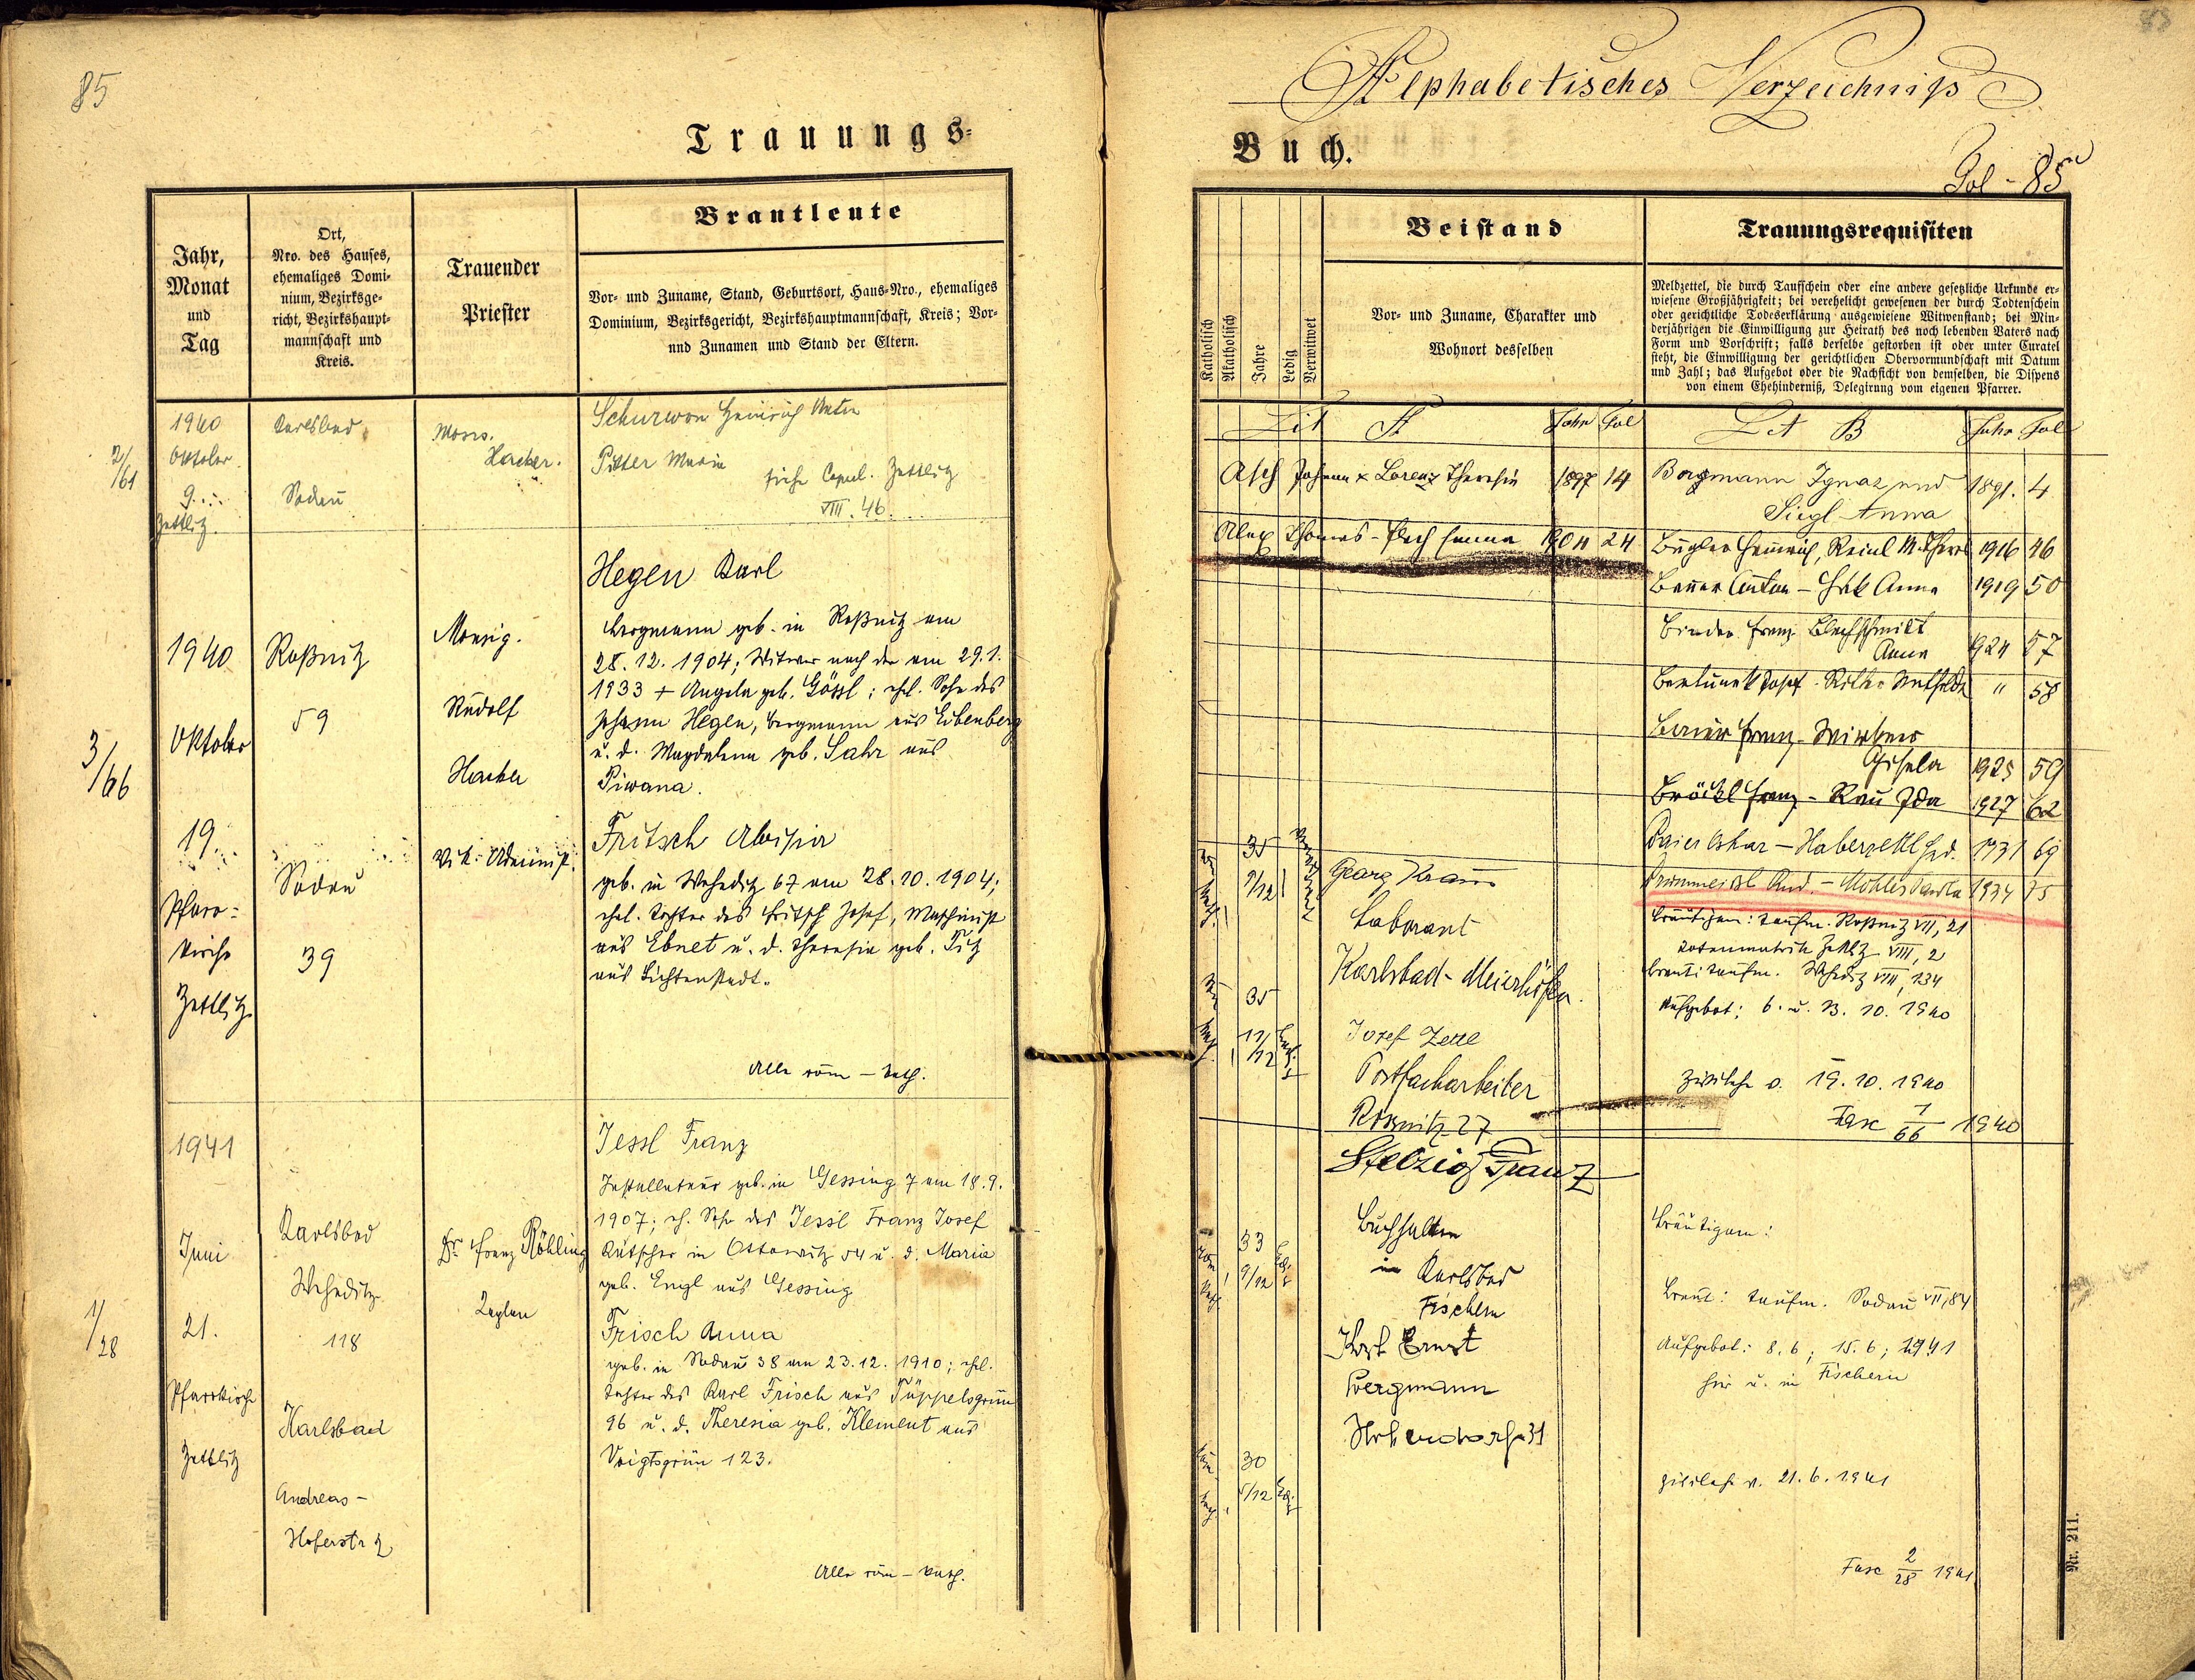 85
Trauungs=
Jahr,
Monat
und
Tag
Ort,
Nro. des Hauses,
ehemaliges Domi-
nium, Bezirksge-
richt, Bezirkshaupt-
mannschaft und
Kreis.
Trauender
Priester
Brautleute
Vor- und Zuname, Stand, Geburtsort, Haus-Nro., ehemaliges
Dominium, Bezirksgericht, Bezirkshauptmannschaft, Kreis; Vor-
und Zunamen und Stand der Eltern.
2/61
1940
Oktober
9.
Zettlitz.
Karlsbad
Sodau
Hacker.
Heinrich Anton
Maria
siehe Copul. Zettlitz
VIII. 46.
3/66
1940
Oktober
19.
Pfarr-
kirche
Zettlitz
Roßnitz
59
Sodau
39
Monsig.
Rudolf
Hacker
Hegen Karl
Bergmann geb. in Roßnitz am
28. 12. 1904; Witwer nach der am 29. 1.
1933 + Angela geb. Gössl; ehel. Sohn des
Johann Hegen, Bergmann aus Eibenberg
u. d. Magdalena geb. Sahr aus
Piwana.
Fritsch Aloisia
geb. in Weheditz 67 am 28. 10. 1904;
ehel. Tochter des Fritsch Josef, Maschinist
aus Ebnet u. d. Theresia geb. Titz
aus Lichtenstadt.
Alle röm-kath.
1/28
1941
Juni
21.
Pfarrkirche
Zettlitz
Karlsbad
Weheditz
118
Karlsbad
Andreas-
Hoferstr 2
Dr. Franz Röhling
Kaplan
Jessl Franz
Installateur geb. in Gessing 7 am 18. 9.
1907; eh. Sohn des Jessl Franz Josef
Kutscher in Ottowitz 54 u. d. Maria
geb. Engl aus Gessing
Frisch Anna
geb. in Sodau 38 am 23. 12. 1910; ehel.
Tochter des Karl Frisch aus Tüppelsgrün
96 u. d. Theresia geb. Klement aus
Voigtsgrün 123.
Alle röm-kath.
Alphabetisches Verzeichniß
Buch.
Fol - 85
Katholisch
Akatholisch
Jahre
Ledig
Verwitwet
Beistand
Vor- und Zuname, Charakter und
Wohnort desselben
Trauungsrequisiten
Meldzettel, die durch Taufschein oder eine andere gesetzliche Urkunde er-
wiesene Großjährigkeit; bei verehelicht gewesenen der durch Todtenschein
oder gerichtliche Todeserklärung ausgewiesene Witwenstand; bei Min-
derjährigen die Einwilligung zur Heirath des noch lebenden Vaters nach
Form und Vorschrift; falls derselbe gestorben ist oder unter Curatel
steht, die Einwilligung der gerichtlichen Obervormundschaft mit Datum
und Zahl; das Aufgebot oder die Nachsicht von demselben, die Dispens
von einem Ehehinderniß, Delegirung vom eigenen Pfarrer.
Lit A Jahr Fol
Asch Johann x Lorenz Theresia 1897 14
Thomas 1904 24
Lit B Jahr Fol
Borgmann Ignaz und
Siegl Anna 1891. 4
Heinrich, Reinl M. 1916 46
Anton - Anna 1919 50
Binder Franz Blechschmidt
Anna 1924 57
Josef - " 58
Franz -
Gisela 1925 59
Bröckl Franz - Rau Ida 1927 62
Oskar - 1931 69
1934 75
Bräutigam: Taufm. Roßnitz VII, 21
Totenmatrik Zettlitz VIII, 2
Braut: Taufm. Weheditz VIII, 134
Aufgebot: 6. u. 13. 10. 1940
Zivilehe v. 19. 10. 1940
Fasc 1/66 1940
35
9/12
Georg Kraus
Laborant
Karlsbad-Meierhöfen.
35
11/12
Josef
Postfacharbeiter
Rossnitz 27
33
9/12
Stelzig Franz
Buchhalter
in Karlsbad
Fischern
Karl Ernst
Bergmann
31
30
5/12
Bräutigam:
Braut: Taufm. Sodau VII, 84
Aufgebot: 8. 6; 15. 6; 1941
hier u. in Fischern
Zivilehe v. 21. 6. 1941
Fasc 2/28 1941
Nr. 211.